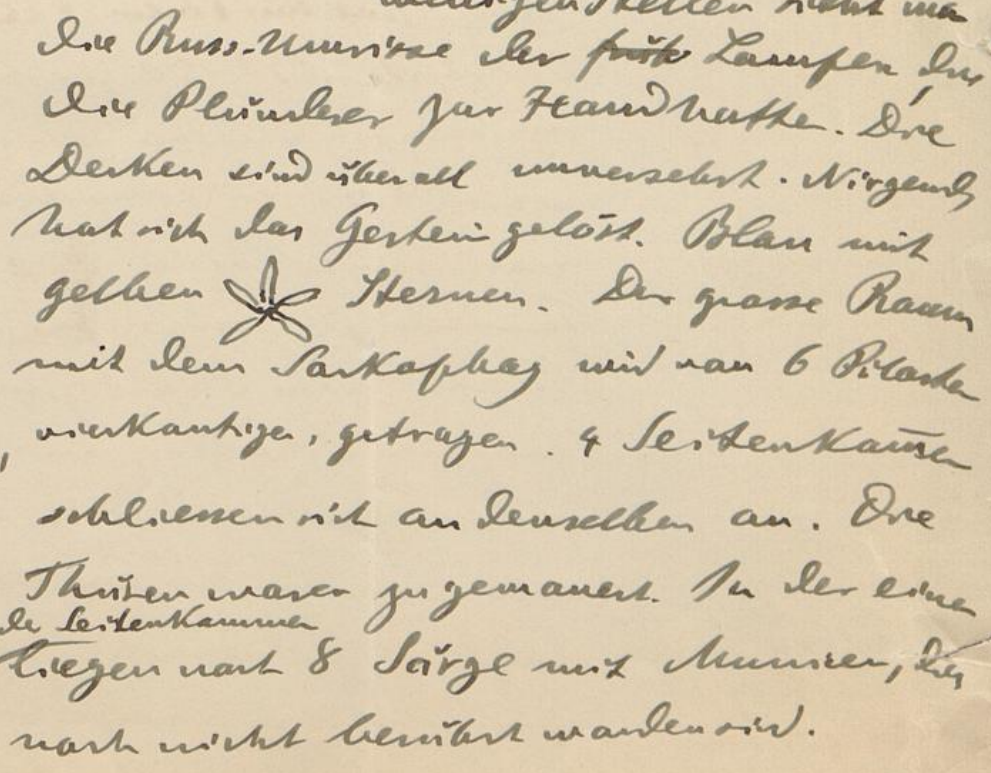 wenigen Stellen sieht man
die Russ-Umrisse der früh Lampen, die
die Plünderer zur Hand hatten. Die
Decken sind überall unversehrt. Nirgends
hat sich das Gestein gelöst. Blau mit
gelben Sternen. Der grosse Raum
mit dem Sarkophag wird von 6 Pilastern
vierkantigen, getragen. 4 Seitenkammern
schliessen sich an denselben an. Die
Thüren waren zugemauert. In der einen
der Seitenkammern
liegen noch 8 Särge mit Mumien, die
noch nicht berührt worden sind.